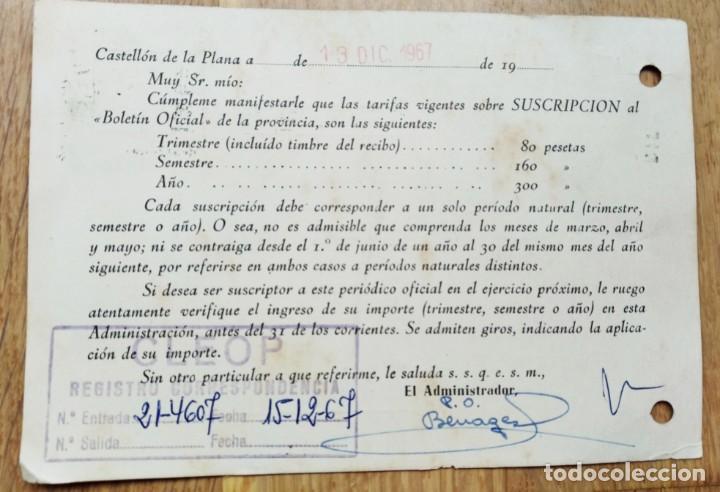 Castellón de la Plana a de 13 DIC. 1967 de 19
Muy Sr. mío:
Cúmpleme manifestarle que las tarifas vigentes sobre SUSCRIPCION al
«Boletín Oficial» de la provincia, son las siguientes:
Trimestre (incluído timbre del recibo) 80 pesetas
Semestre 160 »
Año 300 »
Cada suscripción debe corresponder a un solo período natural (trimestre,
semestre o año). O sea, no es admisible que comprenda los meses de marzo, abril
y mayo; ni se contraiga desde el 1.º de junio de un año al 30 del mismo mes del año
siguiente, por referirse en ambos casos a períodos naturales distintos.
Si desea ser suscriptor a este periódico oficial en el ejercicio próximo, le ruego
atentamente verifique el ingreso de su importe (trimestre, semestre o año) en esta
Administración, antes del 31 de los corrientes. Se admiten giros, indicando la aplica-
ción de su importe.
Sin otro particular a que referirme, le saluda s. s. q. e. s. m.,
El Administrador,
P.O.
Benages
CLEOP
REGISTRO CORRESPONDENCIA
N.º Entrada 21-4607 Fecha 15-12-67
N.º Salida Fecha
todocoleccion.net